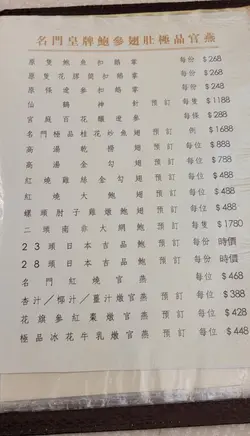 名門皇牌鮑參翅肚極品官燕
原隻鮑魚扣鵝掌 每份 $268
原隻花膠筒扣鵝掌 每份 $268
原條遼參扣鵝掌 每份 $248
仙鶴神針 預訂 每隻 $1188
宮庭百花釀遼參 每條 $288
名門極品桂花炒魚翅 預訂 例 $1688
高湯乾撈翅 預訂 每位 $888
高湯金勾翅 預訂 每位 $788
紅燒雞絲金勾翅 預訂 每位 $488
紅燒大鮑翅 預訂 每位 $388
螺頭肘子雞燉鮑翅 預訂 每位 $428
二頭南非大網鮑 預訂 每隻 $1780
23頭日本吉品鮑 預訂 每份 時價
28頭日本吉品鮑 預訂 每份 時價
名門紅燒官燕 每位 $468
杏汁／椰汁／薑汁燉官燕 預訂 每位 $388
花旗參紅棗燉官燕 預訂 每位 $428
極品冰花牛乳燉官燕 預訂 每位 $448